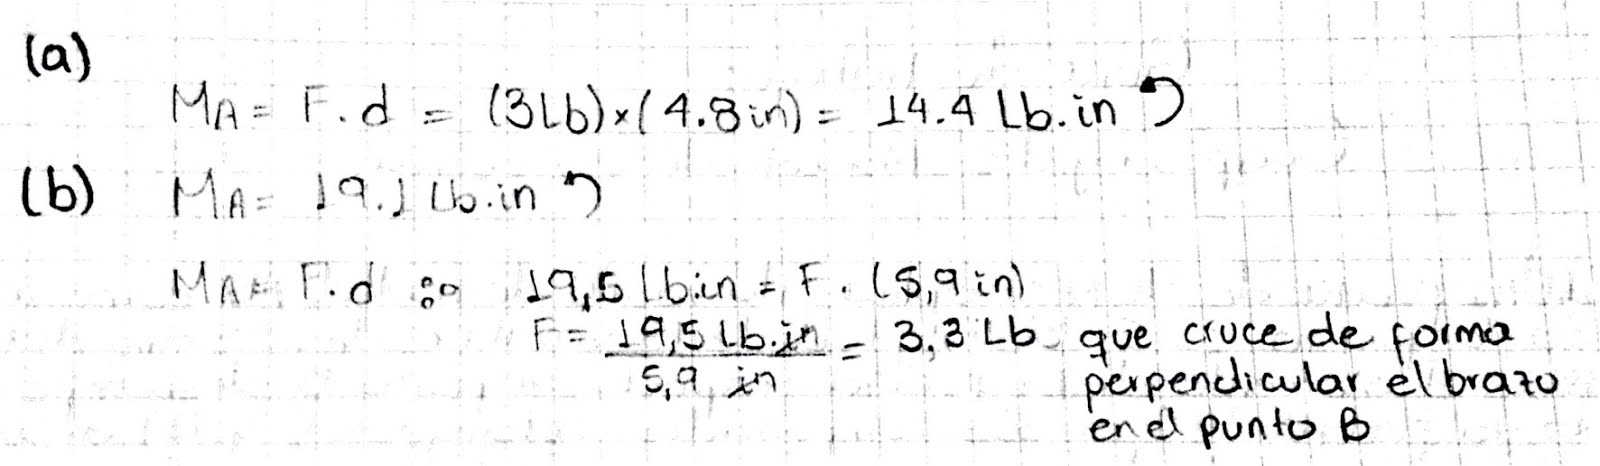 (a)
MA = F.d = (3Lb)×(4.8in) = 14.4 Lb.in ↺
(b) MA = 19.1 Lb.in ↺
MA = F.d ∴ 19,5 lb.in = F . (5,9 in)
F = 19,5 Lb.in / 5,9 in = 3,3 Lb que cruce de forma
perpendicular el brazo
en el punto B